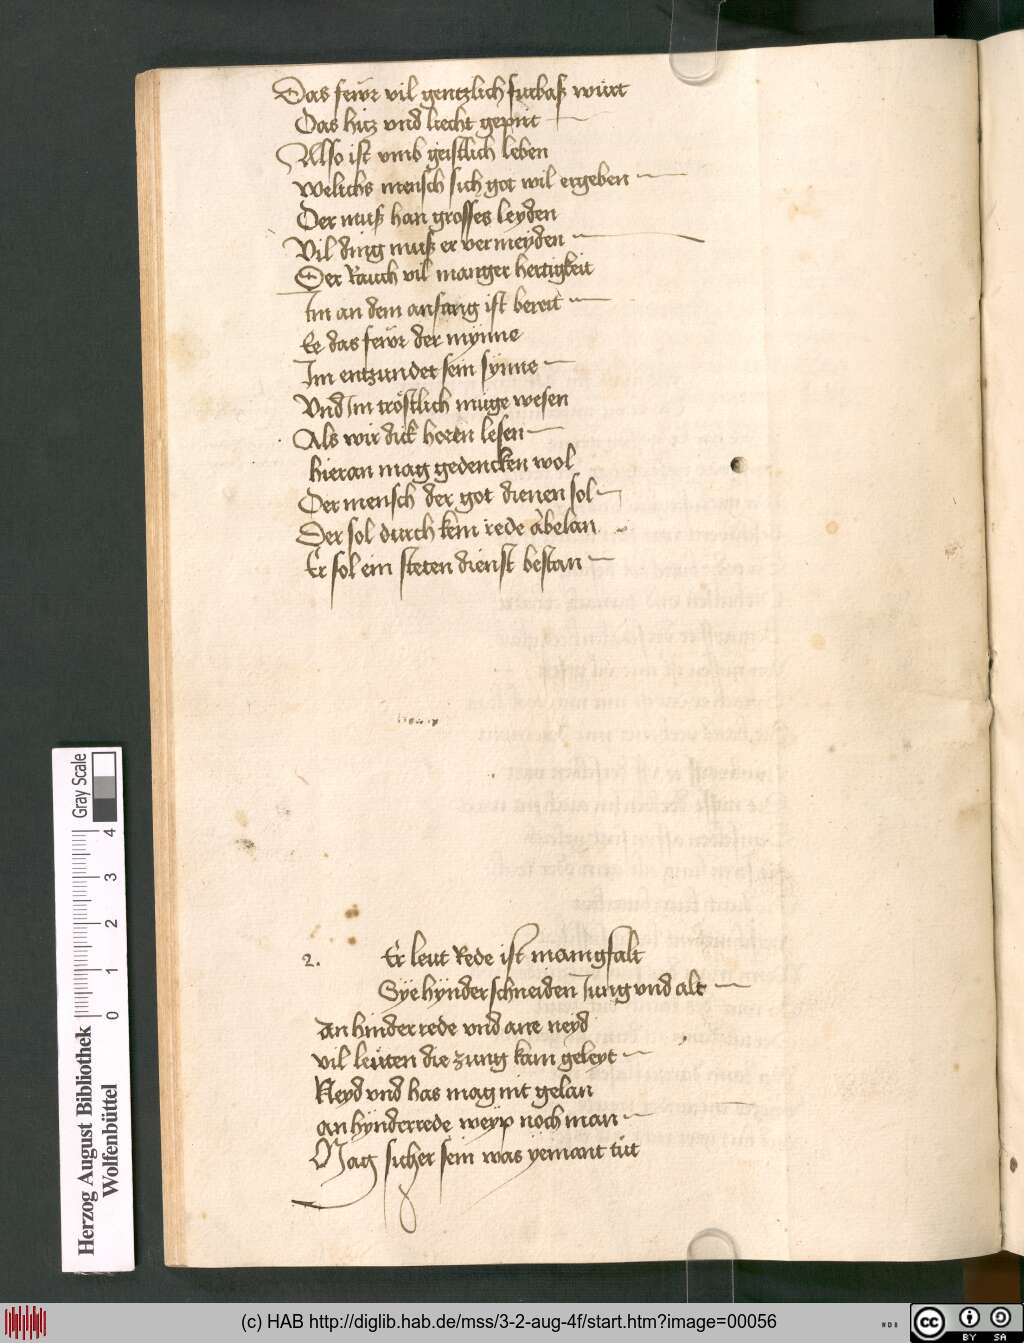 Das fewr vil gentzlich furbaß würt
Das hitz vnd liecht gepirt
Also ist vmb geistlich leben
Welichs mensch sich got wil ergeben
Der muß han grosses leyden
Vil ding muß er vermeyden
Der Rauch vil manger hertigkeit
Im an dem anfang ist bereit
Ee das fewr der mynne
Im entzundet sein synne
Vnd Im tröstlich muge wesen
Als wir dick horen lesen
hieran mag gedencken wol
Der mensch der got dienen sol
Der sol durch kein rede abelan
Er sol ein steten dienst bestan
2. Er leut Rede ist manigfalt
Sye hynder schneiden Iung vnd alt
An hinderrede vnd ane neyd
vil leuten die zung kain geleyt
Neyd vnd has mag nit gelan
an hynderrede weyp noch man
Mag sicher sein was yemant tüt
Gray Scale
0 1 2 3 4
Herzog August Bibliothek
Wolfenbüttel
(c) HAB http://diglib.hab.de/mss/3-2-aug-4f/start.htm?image=00056
WDB
cc BY SA